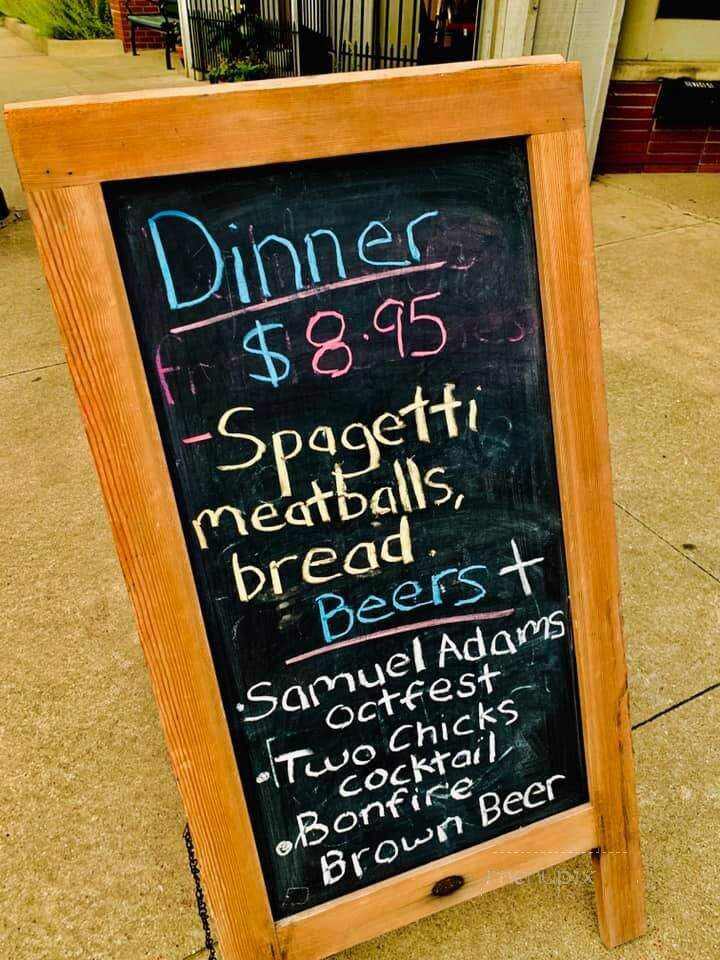 Dinner
$8.95
-Spagetti
meatballs,
bread.
Beers +
•Samuel Adams
octfest
•Two Chicks
cocktail
•Bonfire
Brown Beer
menupix